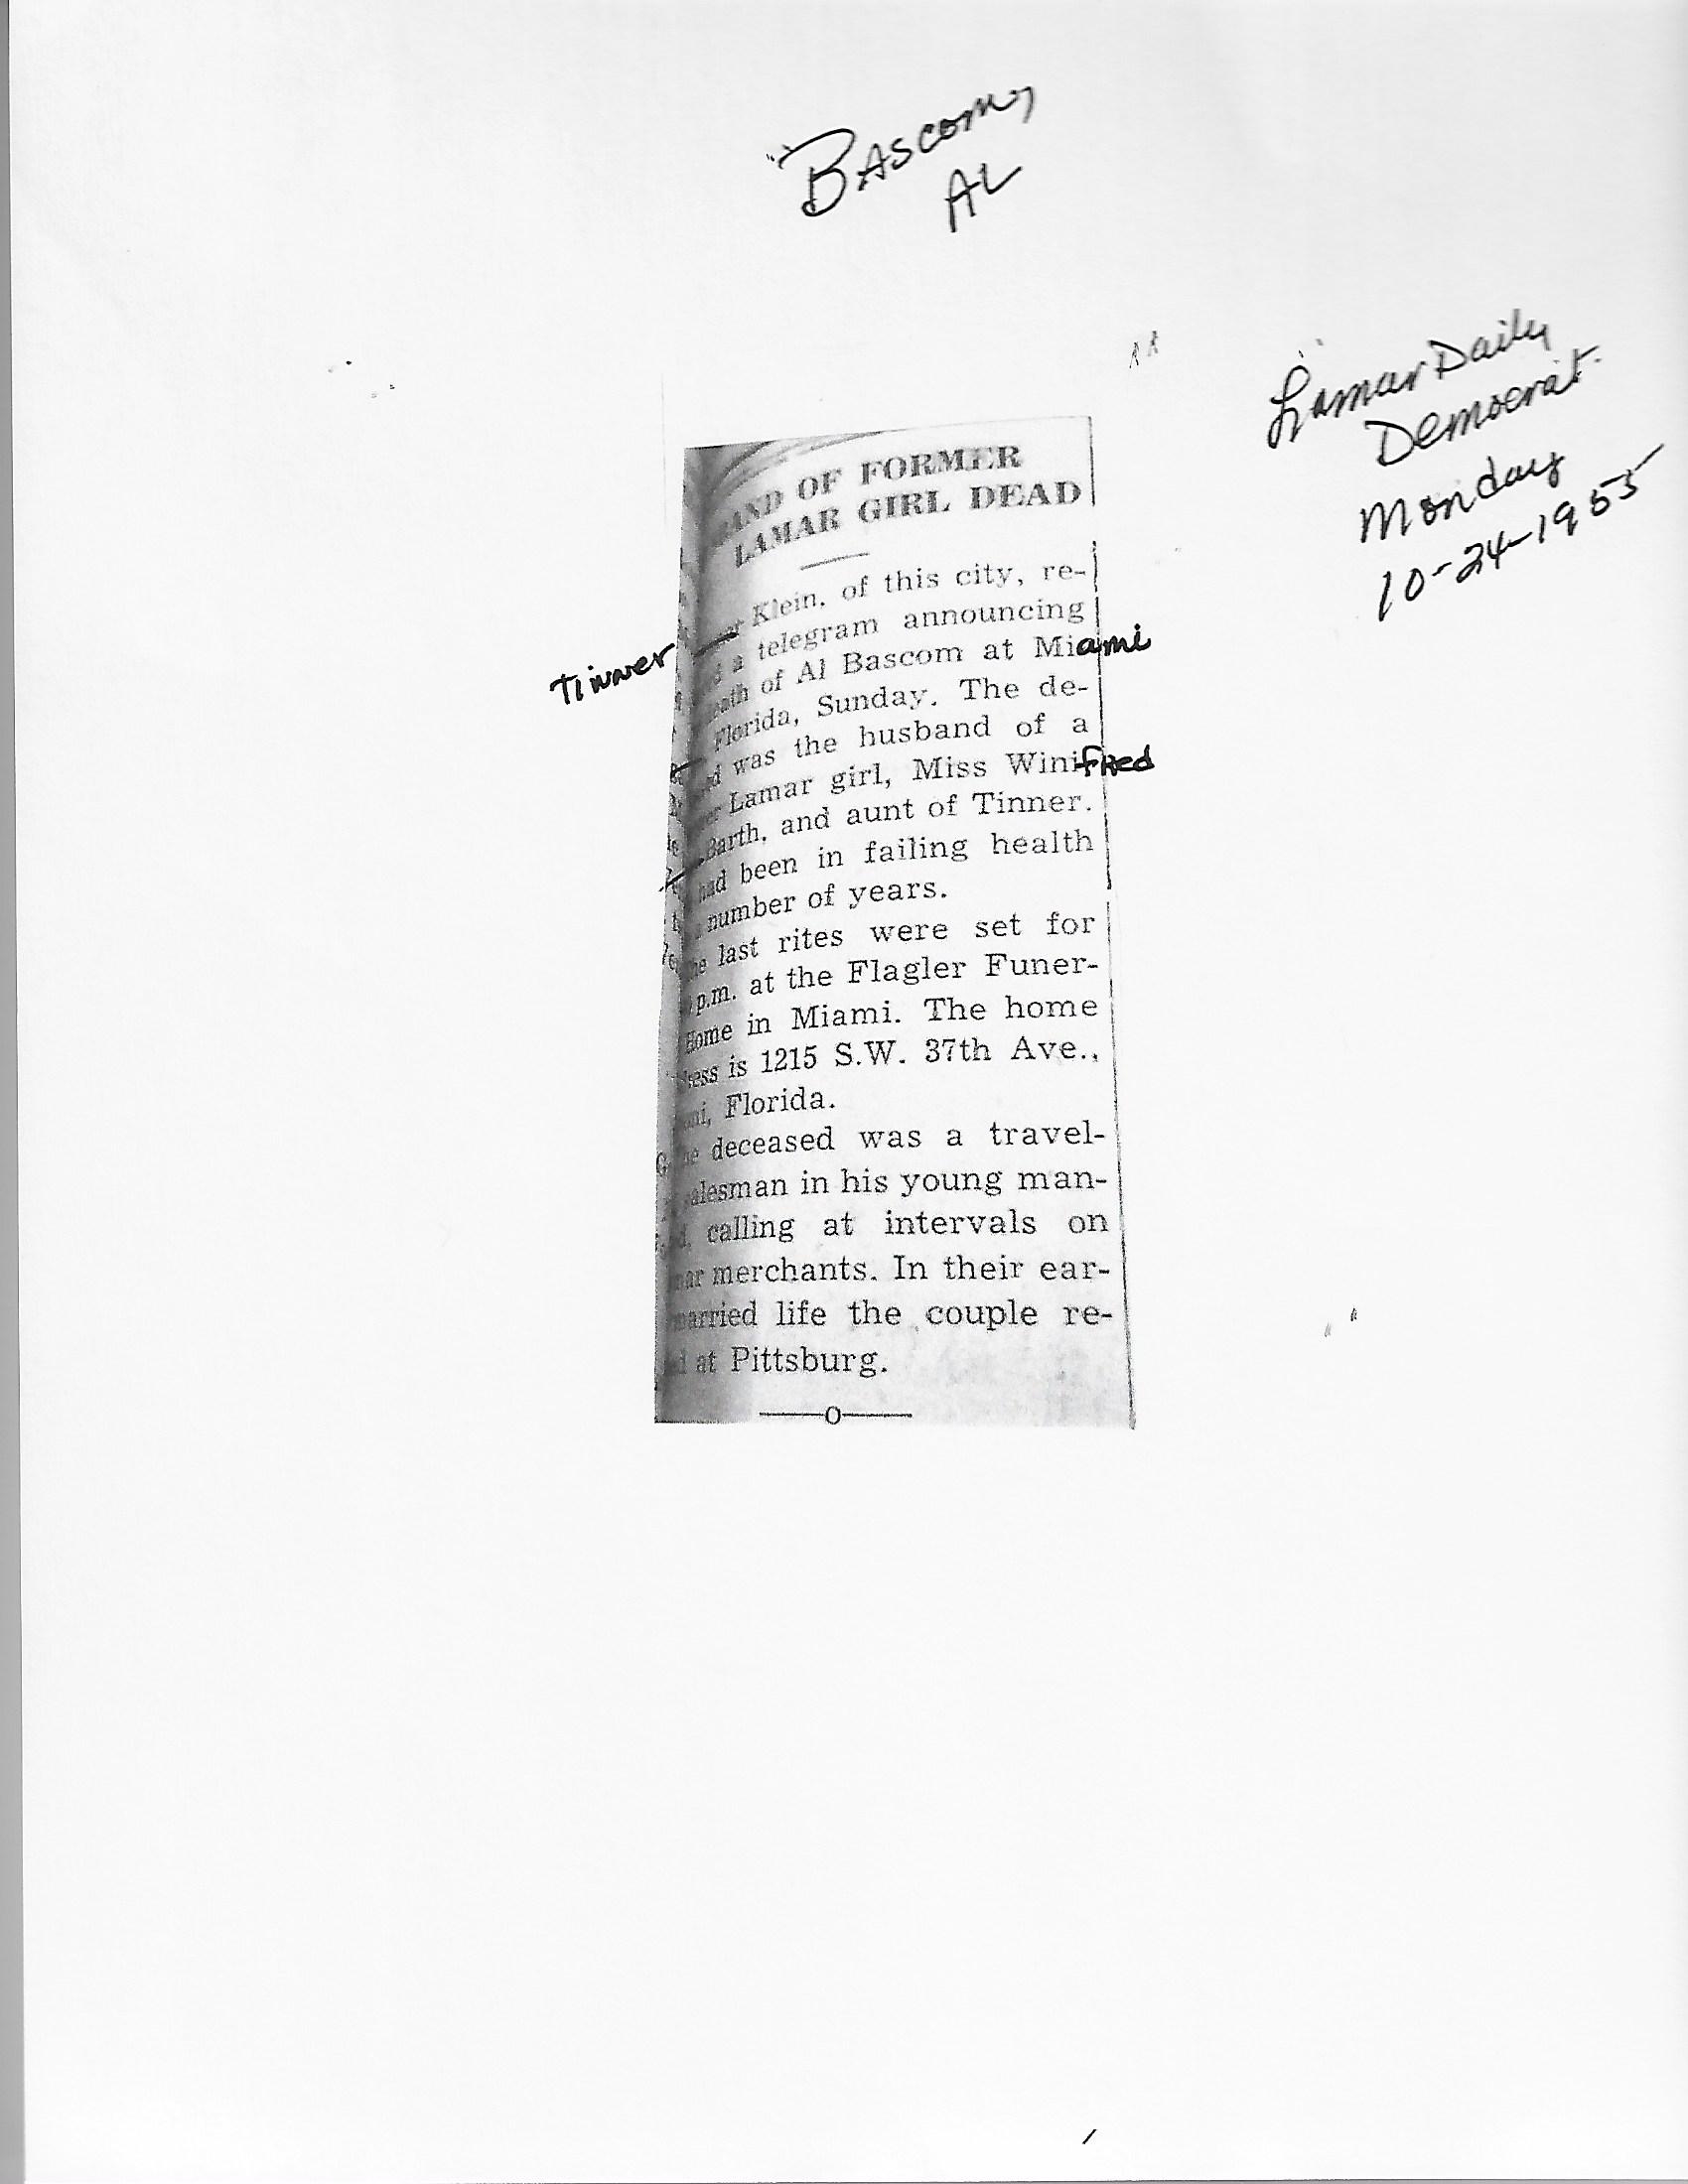 BASCOM,
AL
Lamar Daily
Democrat
Monday
10-24-1955
BAND OF FORMER
LAMAR GIRL DEAD
Tinner Klein, of this city, re-
a telegram announcing
of Al Bascom at Miami
Florida, Sunday. The de-
was the husband of a
Lamar girl, Miss Winifred
Barth, and aunt of Tinner.
had been in failing health
number of years.
last rites were set for
p.m. at the Flagler Funer-
Home in Miami. The home
ess is 1215 S.W. 37th Ave.,
Florida.
deceased was a travel-
alesman in his young man-
calling at intervals on
merchants. In their ear-
married life the couple re-
at Pittsburg.
O